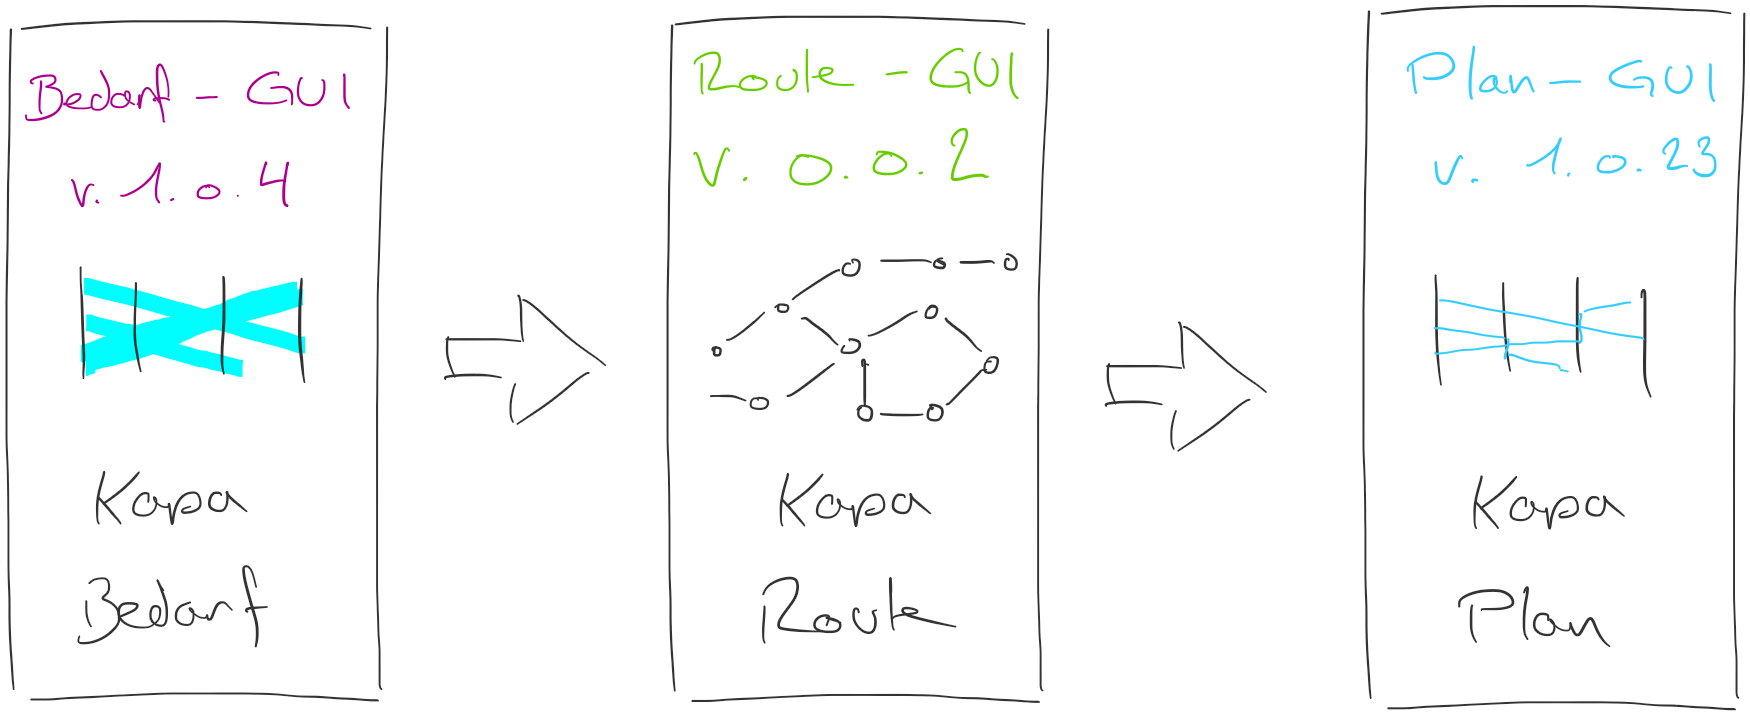 Bedarf - GUI
v. 1.0.4
Kapa
Bedarf
Route - GUI
v. 0.0.2
Kapa
Route
Plan - GUI
v. 1.0.23
Kapa
Plan